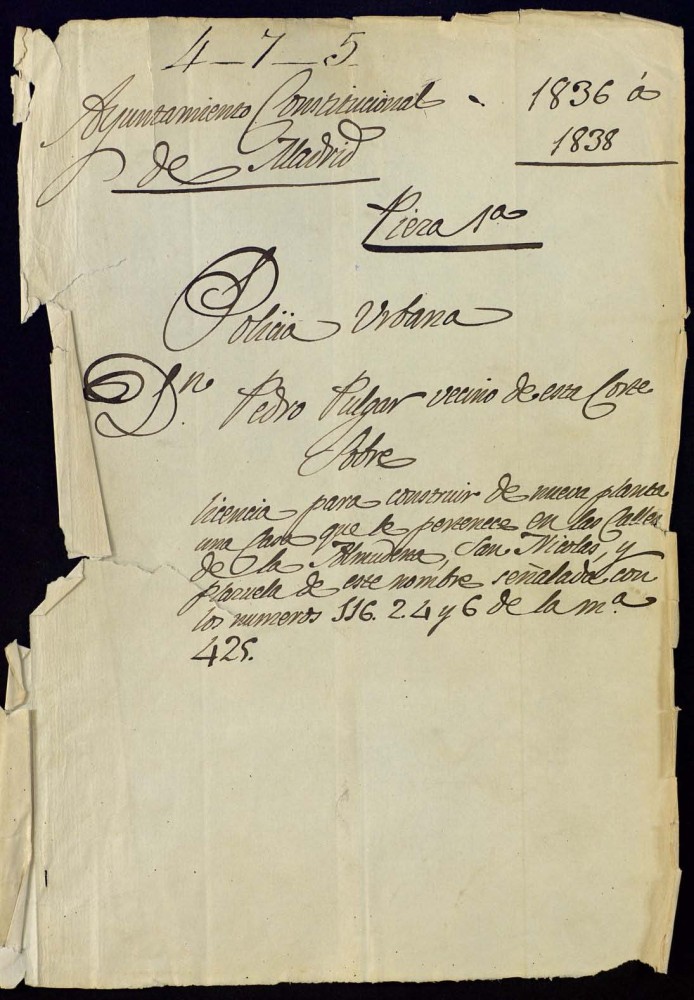 4_7_5
Ayuntamiento Constitucional . 1836 á
de Madrid 1838
Pieza 1ª
Policia Urbana
Dn Pedro Pulgar vecino de esta Corte
Sobre
licencia para construir de nueva planta
una Casa que le pertenece en las Calles
de la Almudena, San Nicolas, y
plazuela de este nombre señalada con
los numeros 116. 2. 4 y 6 de la mª
425.